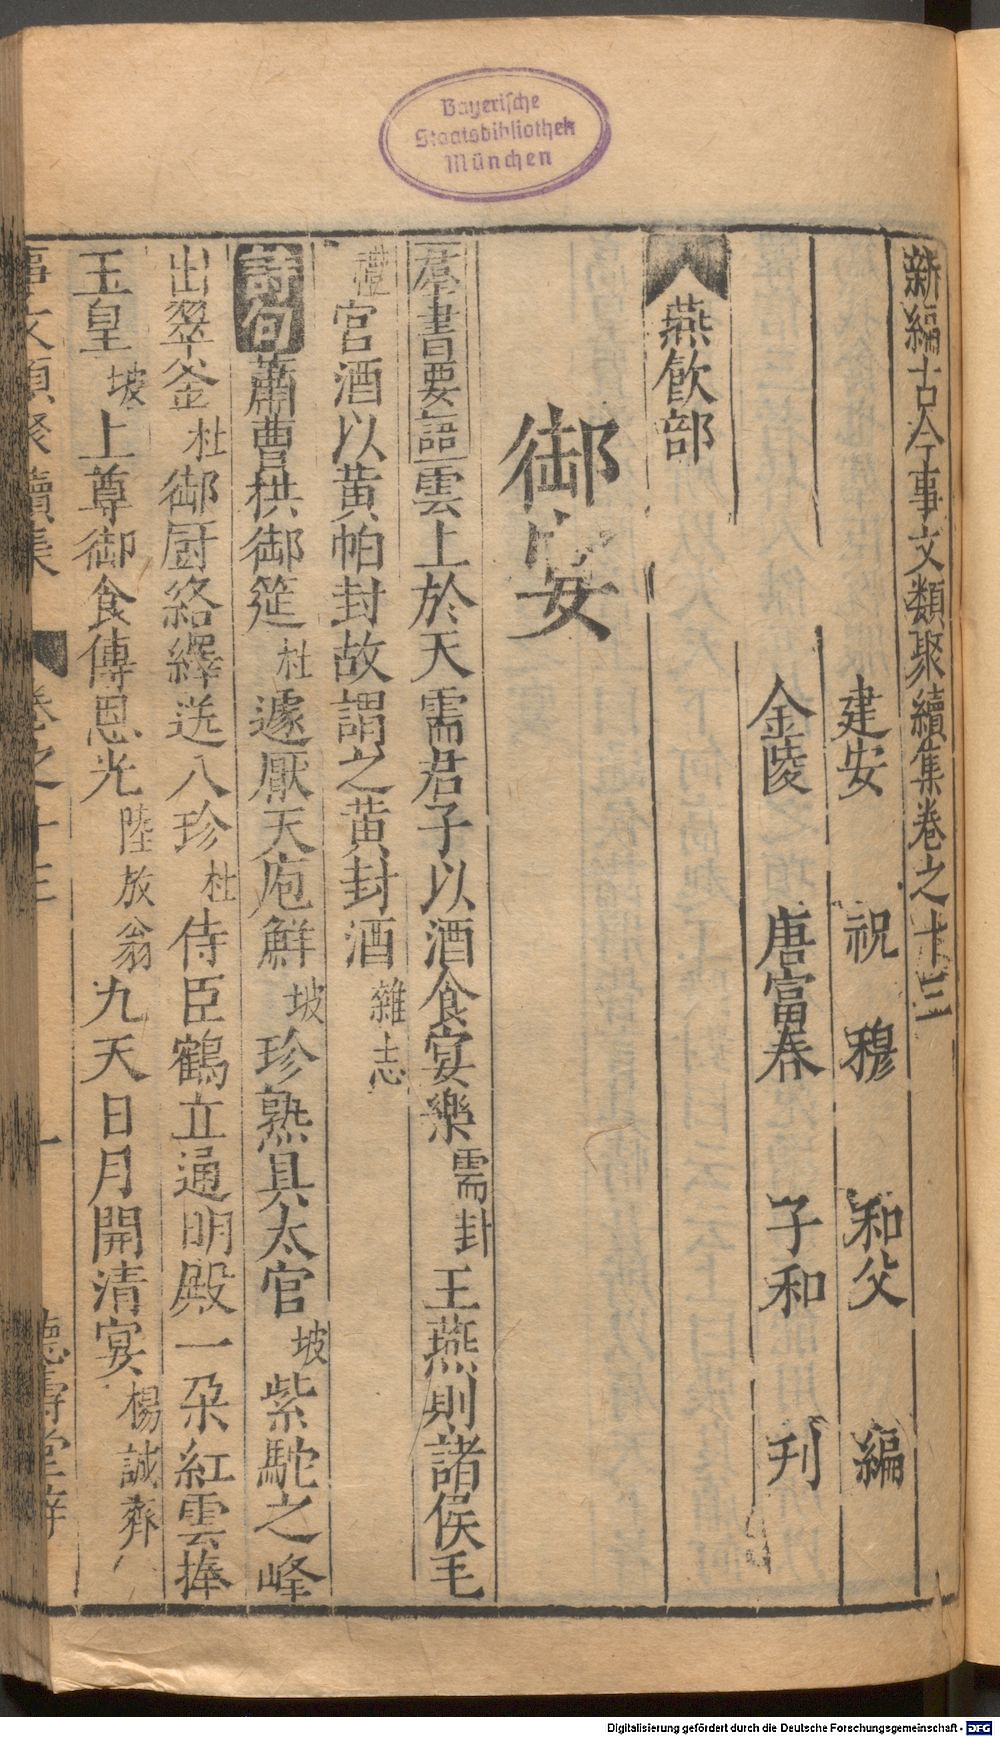 Bayerische
Staatsbibliothek
München
新編古今事文類聚續集卷之十三
建安 祝 穆 和父 編
金陵 唐富春 子和 刋
燕飲部
御宴
羣書要語雲上於天需君子以酒食宴樂需卦王燕則諸侯毛
禮宫酒以黃帕封故謂之黃封酒雜志
詩句蕭曹拱御筵杜遽厭天庖鮮坡珍熟具太官坡紫駝之峰
出翠釜杜御厨絡繹送八珍杜侍臣鶴立通明殿一朶紅雲捧
玉皇坡上尊御食傳恩光陸放翁九天日月開清宴楊誠齋
事文類聚續集 卷之十三 一 德壽堂梓
Digitalisierung gefördert durch die Deutsche Forschungsgemeinschaft - DFG